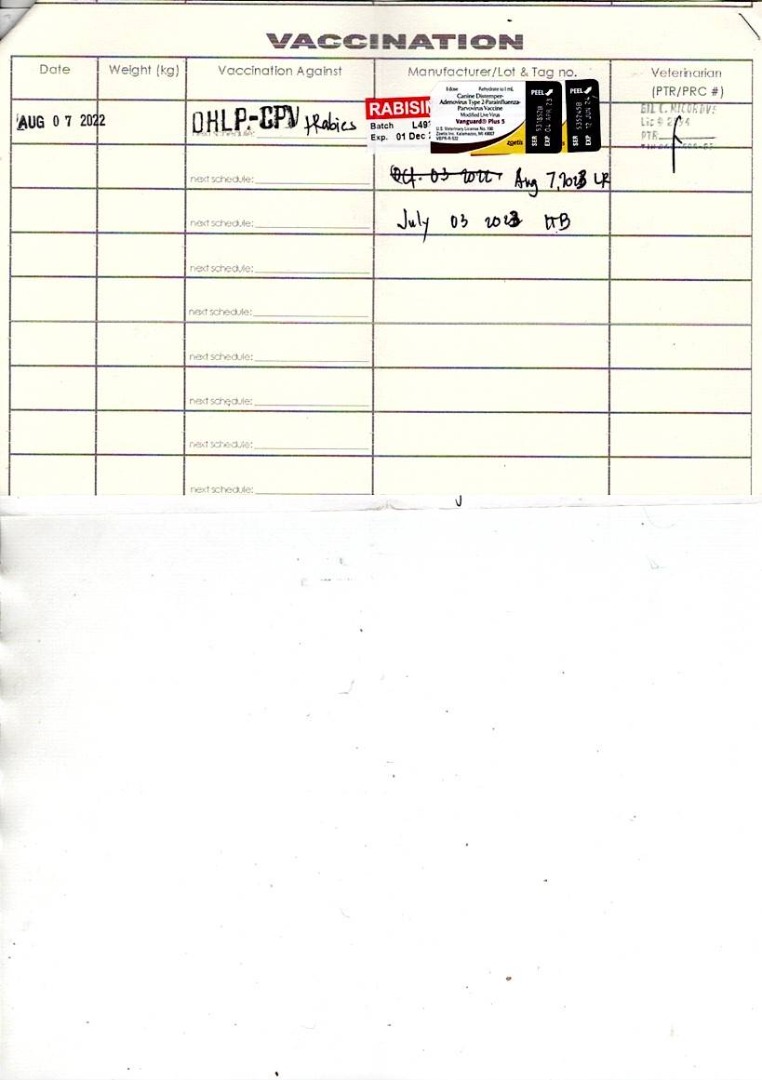 VACCINATION
Date Weight (kg) Vaccination Against Manufacturer/Lot & Tag no. Veterinarian
(PTR/PRC #)
AUG 07 2022 DHLP-CPV +Rabies
RABISIN
Batch L49
Exp. 01 Dec
1 dose Rehydrate to 1 mL
Canine Distemper-
Adenovirus Type 2-Parainfluenza-
Parvovirus Vaccine
Modified Live Virus
Vanguard® Plus 5
U.S. Veterinary License No. 190
Zoetis Inc. Kalamazoo, MI 49007
zoetis
PEEL
SER
EXP 04 APR 23
PEEL
SER
EXP 12 JUL 24
Lic #
PTR
next schedule:
Oct. 03 2022 Aug 7, 2023
next schedule:
July 03 2023
next schedule:
next schedule:
next schedule:
next schedule:
next schedule:
next schedule: